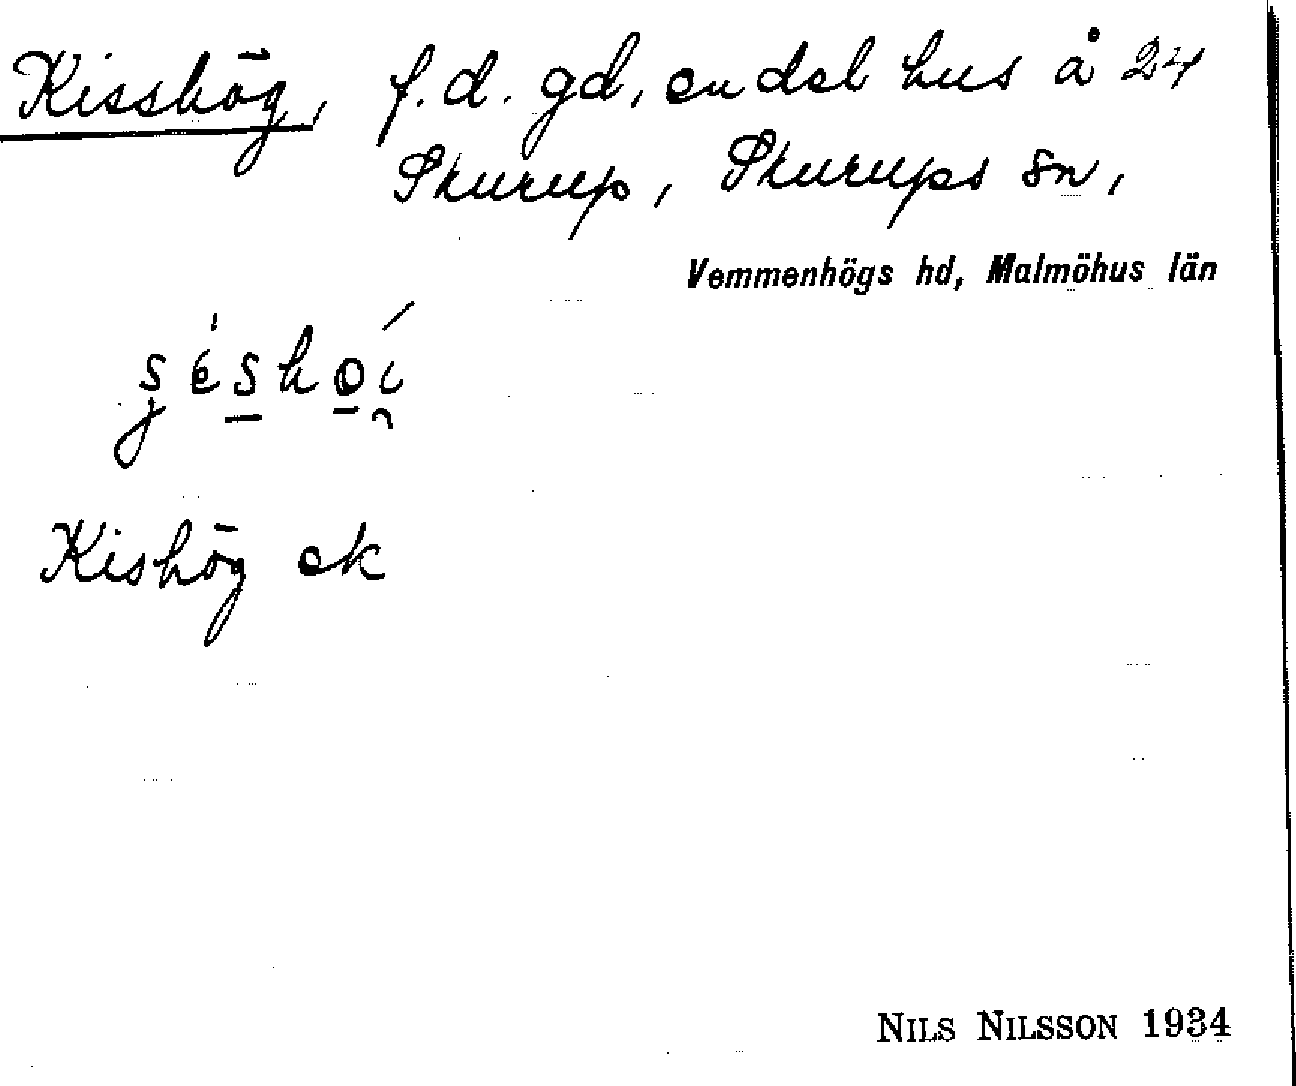 Kisshög, f.d. gd, en del hus å 24
Skurup, Skurups sn,
Vemmenhögs hd, Malmöhus län
Kishög ek
NILS NILSSON 1934